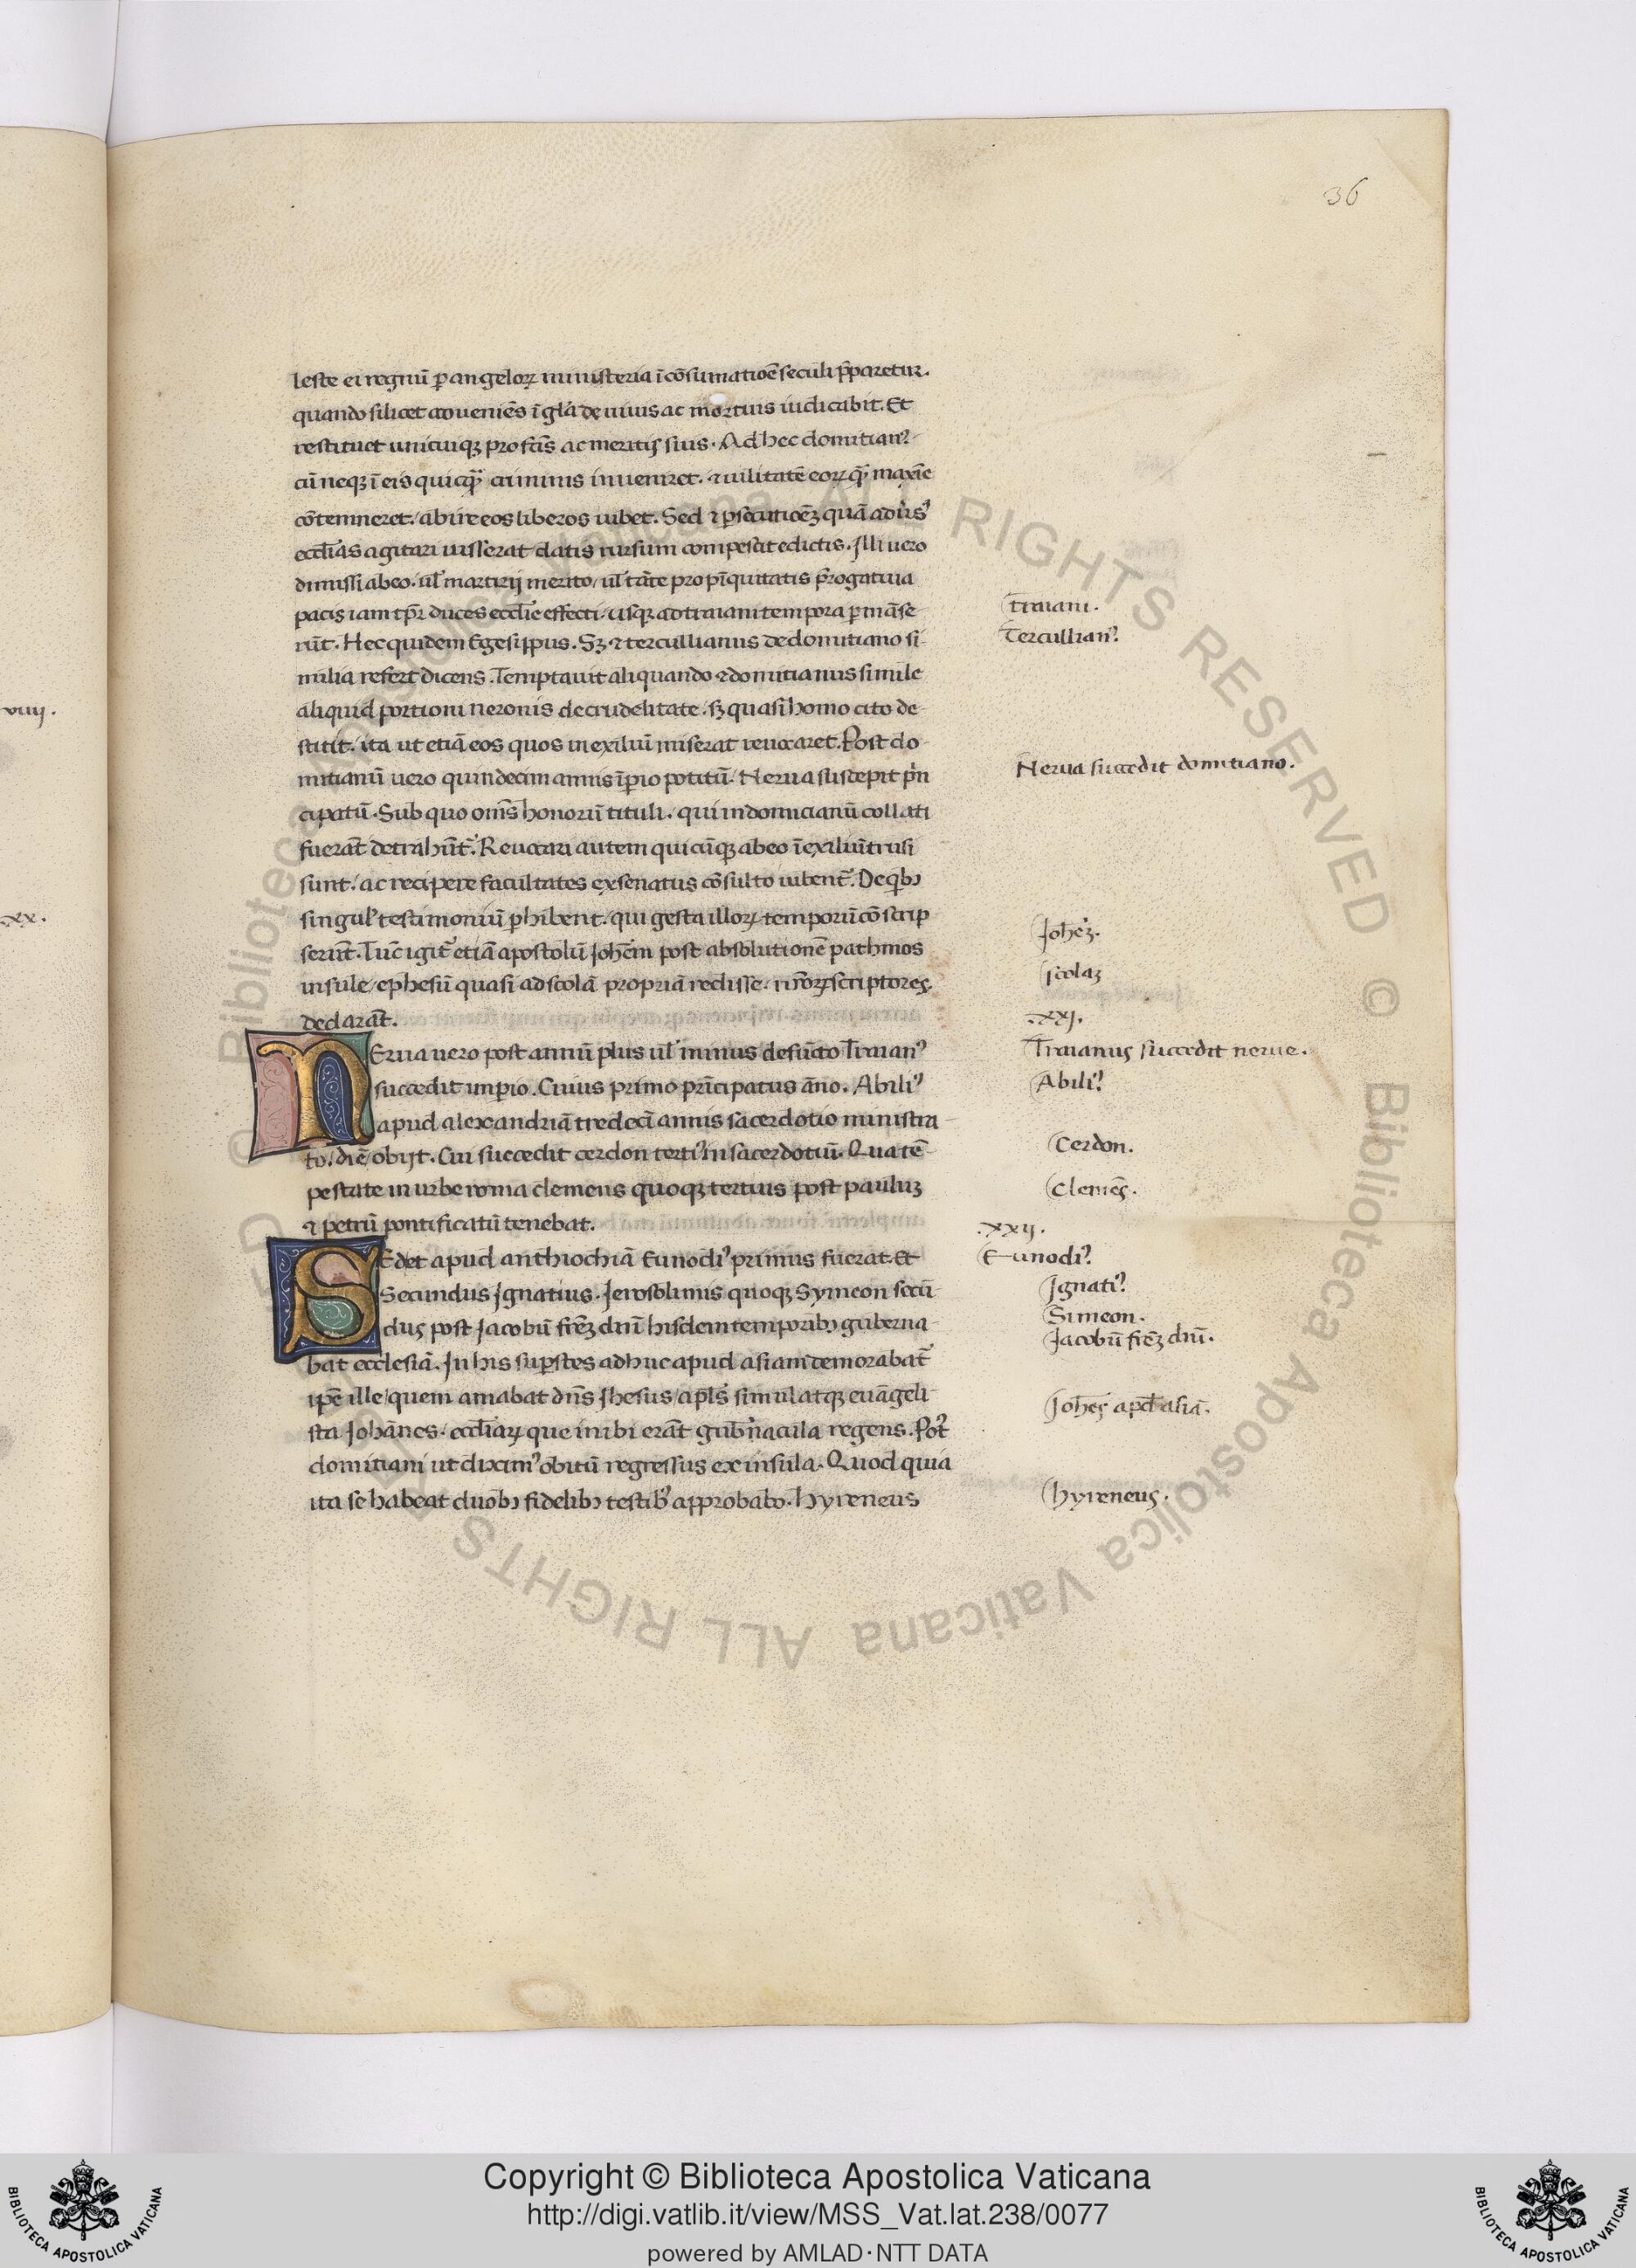 36
leste ei regnū ꝑ angeloꝝ ministeria ī cōsumatiōē seculi p̄paretur.
quando silicet adueniēs ī gl̄a de uiuis ac mortuis iudicabit. Et
restituet unicuiqꝫ pro fc̄is ac meritis suis. Ad hec domitianꝰ
cū neqꝫ ī eis quicq̄ criminis inueniret. ⁊ uilitatē eoꝝ q̄ maxīe
cōtemneret. abire eos liberos iubet. Sed ⁊ ꝑsecutiōeꝫ quā aduꝰsꝰ
eccl̄ias agitari iusserat datis rursum compescit edictis. Illi uero
dimissi abeo. ul̄ martirij merito / ul̄ tāte propīquitatis p̄rogatiua
pacis iam tp̄r duces eccl̄ie effecti. usqꝫ ad traiani tempora ꝑmāse
rūt. Hec quidem Egesippus. Sꝫ ⁊ tercullianus de domitiano si
milia refert dicens. Temptauit aliquando ⁊ domitianus simile
aliquid portioni neronis de crudelitate. sꝫ quasi homo cito de
stitit. ita ut etiā eos quos in exiliū miserat reuocaret. Post do
mitianū uero quindecim annis īperio potitū. Nerua suscepit prīn
cipatū. Sub quo om̄s honorū tituli. qui in domicianū collati
fuerāt detrahūt᷑. Reuocari autem quicūqꝫ ab eo ī exiliū trusi
sunt. ac recipere facultates ex senatus cōsulto iubent᷑. De qꝫ
singul᷑ testimoniū ꝑhibent. qui gesta illoꝝ temporū cōscrip
serūt. Tūc igit᷑ etiā apostolū Joh̄em post absolutionē pathmos
insule / ephesū quasi ad scolā propriā redisse. nr̄oꝝ scriptores
declarāt.
NErua uero post annū plus ul̄ minus defūcto Traianꝰ
succedit imperio. Cuius primo prīcipatus āno. Abiliꝰ
apud alexandriā tredeci annis sacerdotio ministra
to. diē obijt. Cui succedit cerdon tertiꝰ in sacerdotiū. Qua tē
pestate in urbe roma clemens quoqꝫ tertius post pauluꝫ
⁊ petrū pontificatū tenebat.
SEdet apud anthiochiā Eunodiꝰ primus fuerat. Et
Secundus Ignatius. Jerosolimis quoqꝫ Symeon secū
dus post Jacobū fr̄eꝫ dn̄i hisdem temporibꝫ guberna
bat ecclesiā. In his suꝑstes adhuc apud asiam demorabat᷑
ip̄e ille / quem amabat dn̄s Jhesus / apl̄s simul atqꝫ euāgeli
sta Johānes. eccl̄iaꝝ que inibi erāt gub̄nacula regens. Post
domitiani ut diximꝰ obitū regressus ex insula. Quod quia
ita se habeat duobꝫ fidelibꝫ testibꝰ approbabo. Hyreneus
viiij.
xx.
traiani.
Tercullianꝰ.
Nerua succedit domitiano.
Joheꝫ.
scolaꝫ
.xxj.
Traianus succedit nerue.
Abiliꝰ.
Cerdon.
Clemēs.
.xxij.
Eunodiꝰ.
Ignatiꝰ.
Simeon.
Jacobū fr̄eꝫ dn̄i.
Joh̄es apd̄ asiā.
hyreneus.
Copyright © Biblioteca Apostolica Vaticana
http://digi.vatlib.it/view/MSS_Vat.lat.238/0077
powered by AMLAD·NTT DATA
BIBLIOTECA APOSTOLICA VATICANA
BIBLIOTECA APOSTOLICA VATICANA
© Biblioteca Apostolica Vaticana ALL RIGHTS RESERVED © Biblioteca Apostolica Vaticana ALL RIGHTS